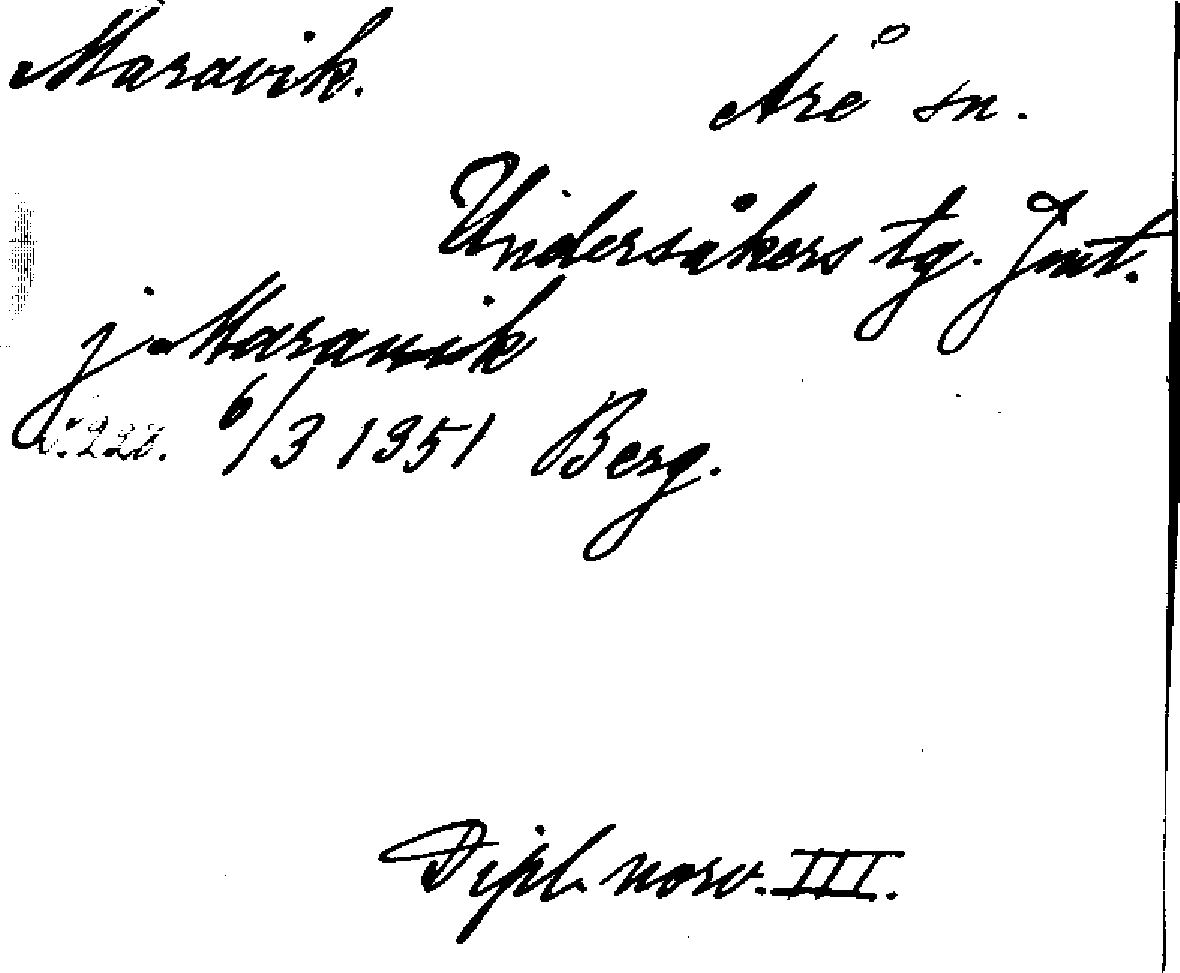 Maravik.
Åre sn.
Undersåkers tg. Jmt.
j Marauuik
s. 228. 6/3 1351 Berg.
Dipl. norv. III.